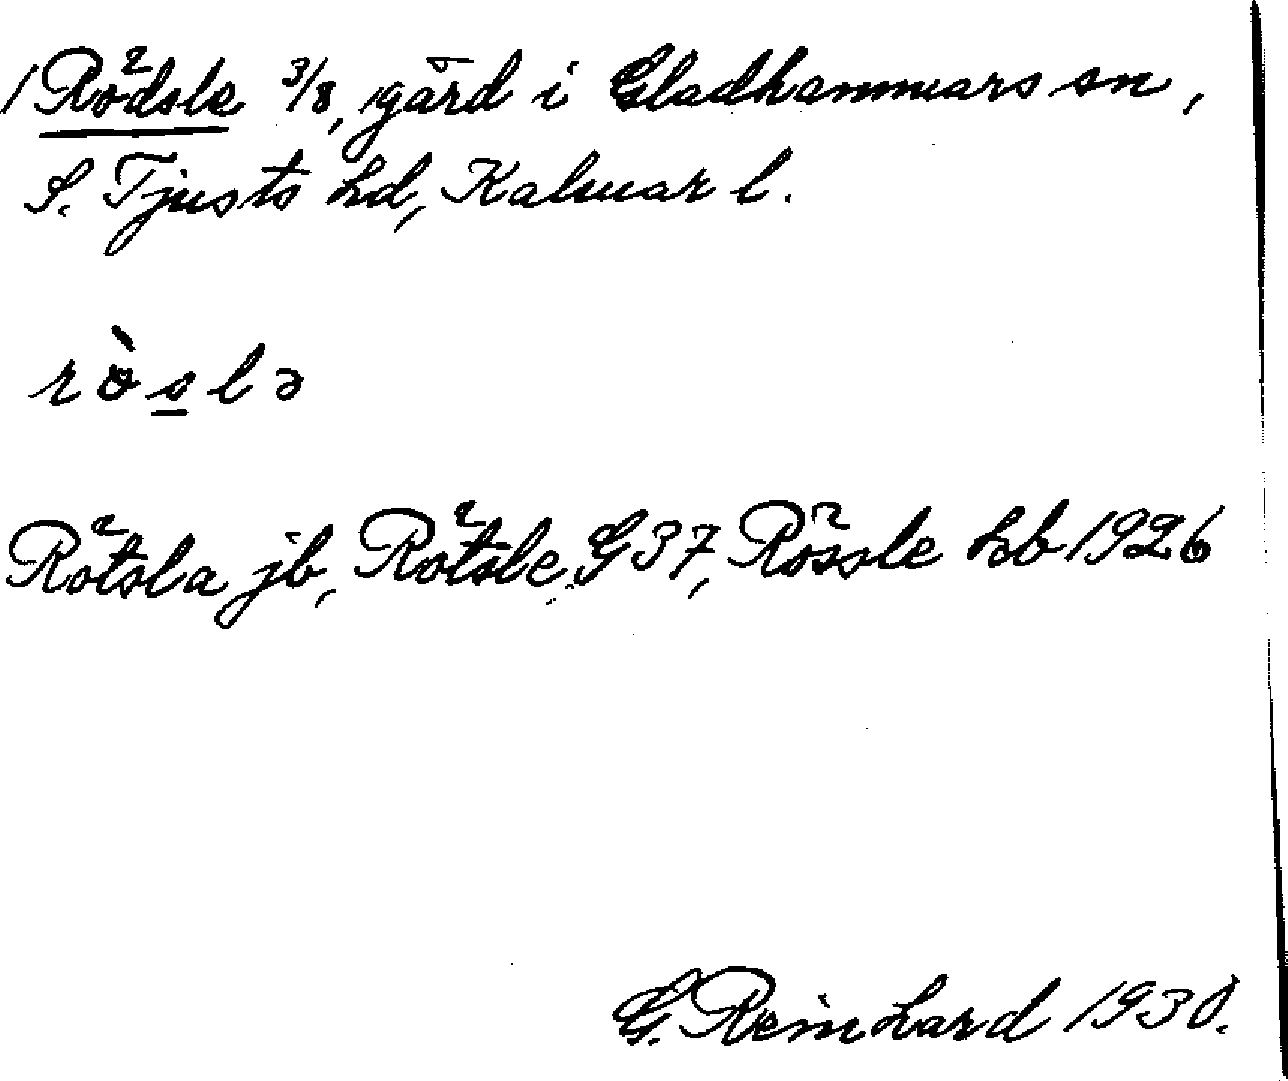 /Rödsle 3/8, gård i Gladhammars sn,
S. Tjusts hd, Kalmar l.
rò̈slə
Rötsla jb, Rötsle G 37, Rössle hb 1926
G. Reinhard 1930.